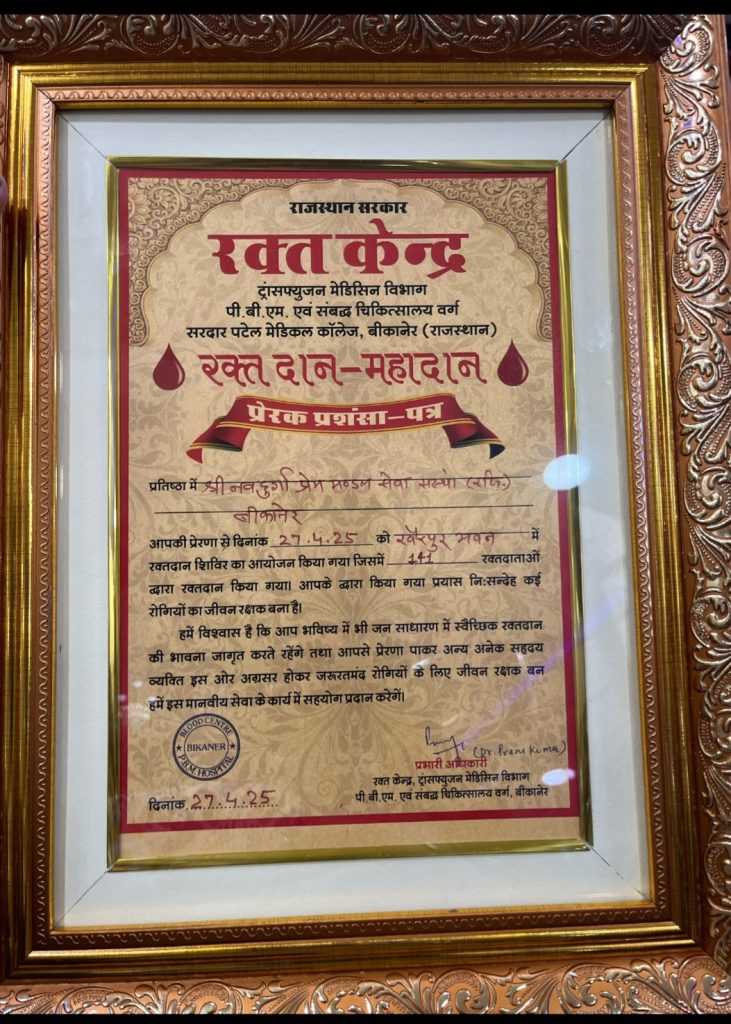 राजस्थान सरकार
रक्त केन्द्र
ट्रांसफ्युजन मेडिसिन विभाग
पी.बी.एम. एवं संबद्ध चिकित्सालय वर्ग
सरदार पटेल मेडिकल कॉलेज, बीकानेर (राजस्थान)
रक्त दान-महादान
प्रेरक प्रशंसा-पत्र
प्रतिष्ठा में श्री नवदुर्गा प्रेम मण्डल सेवा संस्था (रजि.)
बीकानेर
आपकी प्रेरणा से दिनांक 27.4.25 को भवन में
रक्तदान शिविर का आयोजन किया गया जिसमें 141 रक्तदाताओं
द्वारा रक्तदान किया गया। आपके द्वारा किया गया प्रयास नि:सन्देह कई
रोगियों का जीवन रक्षक बना है।
हमें विश्वास है कि आप भविष्य में भी जन साधारण में स्वैच्छिक रक्तदान
की भावना जागृत करते रहेंगे तथा आपसे प्रेरणा पाकर अन्य अनेक सहृदय
व्यक्ति इस ओर अग्रसर होकर जरूरतमंद रोगियों के लिए जीवन रक्षक बन
हमें इस मानवीय सेवा के कार्य में सहयोग प्रदान करेगें।
BLOOD CENTRE
BIKANER
P.B.M. HOSPITAL
(Dr. Prem Kumar)
प्रभारी अधिकारी
रक्त केन्द्र, ट्रांसफ्युजन मेडिसिन विभाग
दिनांक 27.4.25
पी.बी.एम. एवं संबद्ध चिकित्सालय वर्ग, बीकानेर